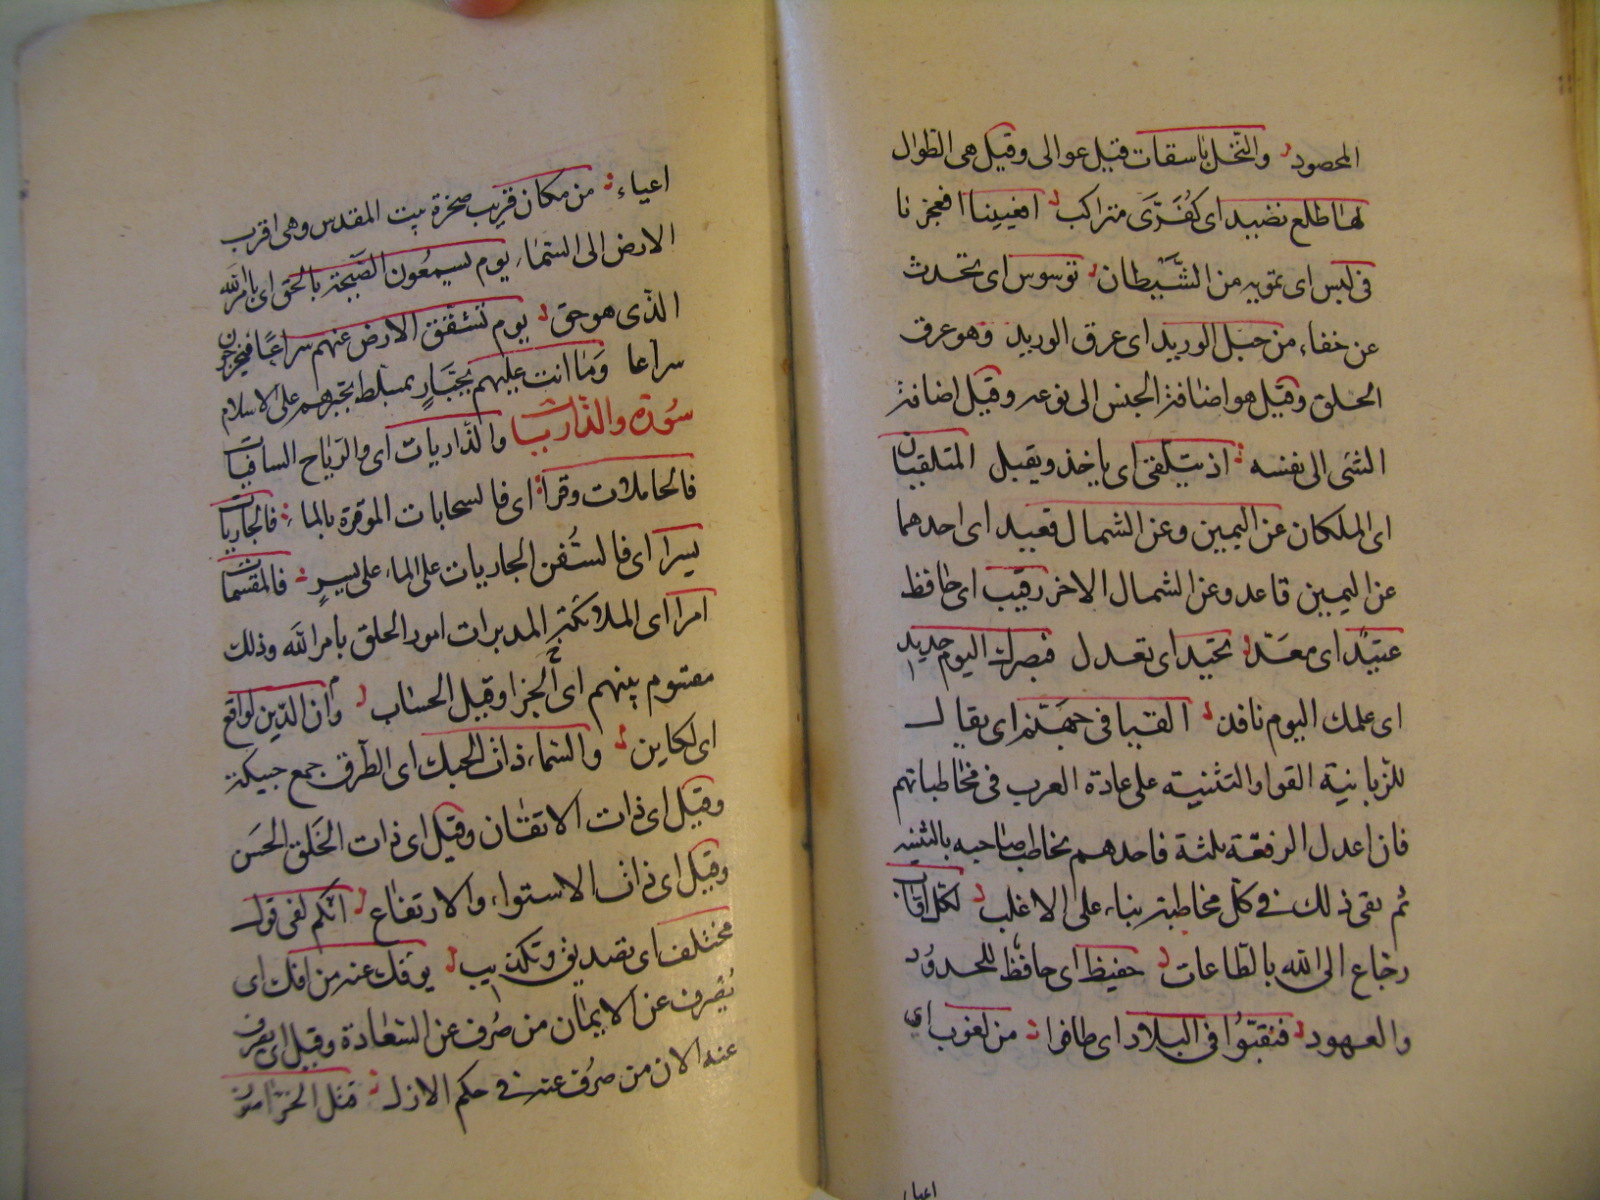 المحصود والنخل باسقات قيل عوالى وقيل هى الطوال
لها طلع نضيد اى كفرى متراكب افعيينا افعجزنا
فى لبس اى تمويه من الشيطان توسوس اى تحدث
عن خفاء من حبل الوريد اى عرق الوريد وهو عرق
الحلق وقيل هو اضافة الجنس الى نوعه وقيل اضافة
الشئ الى نفسه اذ يتلقى اى ياخذ ويقبل المتلقيان
اى الملكان عن اليمين وعن الشمال قعيد اى احدهما
عن اليمين قاعد وعن الشمال الاخر رقيب اى حافظ
عتيد اى معد تحيد اى تعدل فبصرك اليوم حديد
اى علمك اليوم نافذ القيا فى جهنم اى يقال
للزبانية القوا والتثنية على عادة العرب فى مخاطباتهم
فان اعدل الرفقة ثلثة فاحدهم يخاطب صاحبه بالتثنيه
ثم بقى ذلك فى كل مخاطبة بناء على الاغلب لكل اواب
رجاع الى الله بالطاعات حفيظ اى حافظ للحدود
والعهود فنقبوا فى البلاد اى طافوا من لغوب اى
اعياء
اعياء من مكان قريب صخرة بيت المقدس وهى اقرب
الارض الى السماء يوم يسمعون الصيحة بالحق اى بامر الله
الذى هو حق يوم تشقق الارض عنهم سراعا فيخرجون
سراعا وما انت عليهم بجبار بمسلط تجبرهم على الاسلام
سورة والذاريات والذاريات اى والرياح السافيات
فالحاملات وقرا اى فالسحابات الموقرة بالماء فالجاريات
يسرا اى فالسفن الجاريات على الماء على يسير فالمقسمات
امرا اى الملائكة المدبرات امور الخلق بامر الله وذلك
مقسوم بينهم اى الجزا وقيل الحساب وان الدين لواقع
اى لكاين والسماء ذات الحبك اى الطرق جمع حبيكة
وقيل اى ذات الاتقان وقيل اى ذات الخلق الحسن
وقيل اى ذات الاستواء والارتفاع انكم لفى قول
مختلف اى تصديق وتكذيب يوفك عنه من افك اى
يصرف عن الايمان من صرف عن السعادة وقيل اى يصرف
عنه الان من صرف عنه فى حكم الازل قتل الخراصون